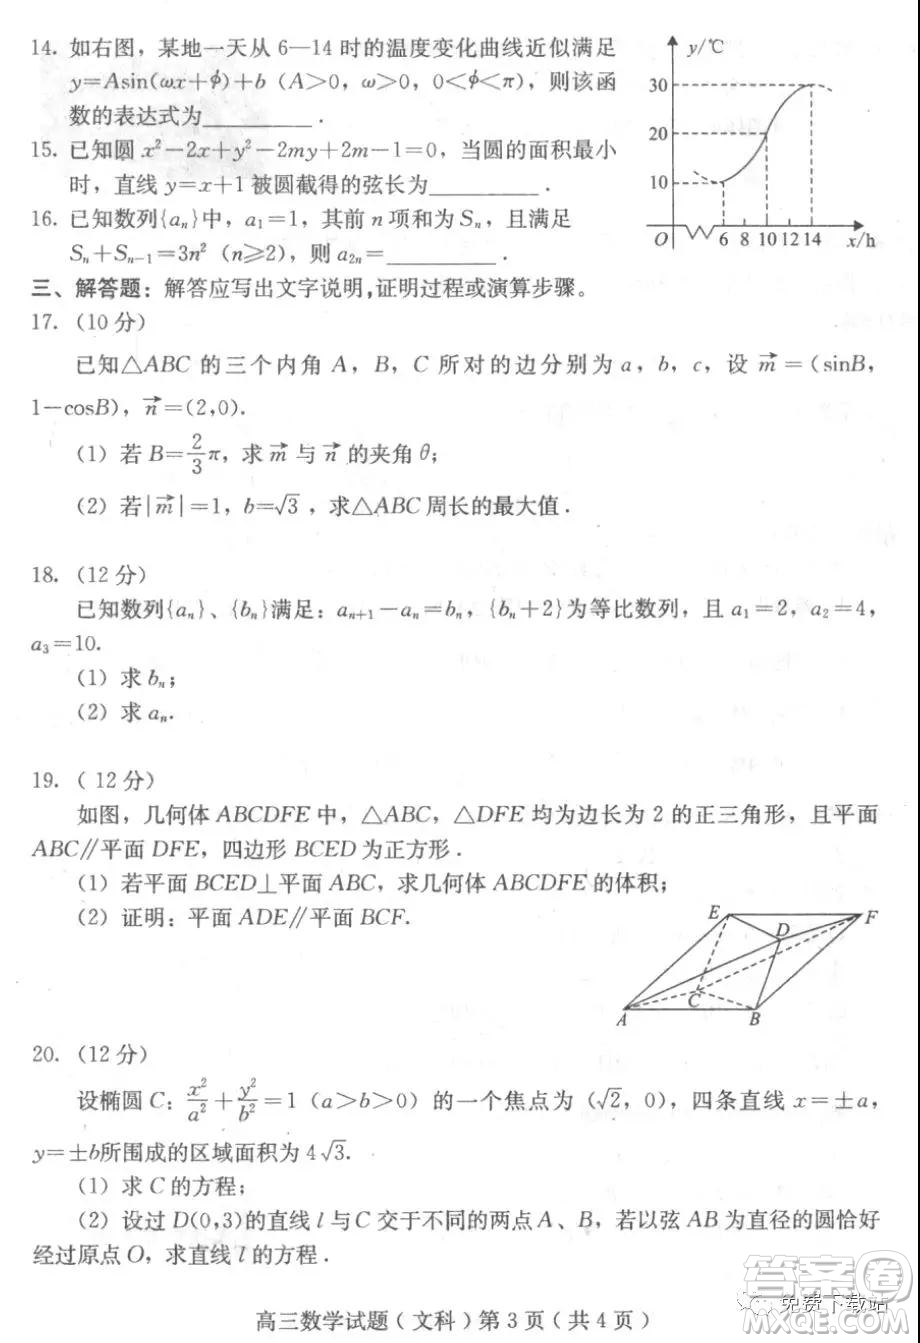 14. 如右图，某地一天从 6—14 时的温度变化曲线近似满足
y=Asin(ωx+ϕ)+b (A>0，ω>0，0<ϕ<π)，则该函
数的表达式为________.
15. 已知圆 x²-2x+y²-2my+2m-1=0，当圆的面积最小
时，直线 y=x+1 被圆截得的弦长为________.
16. 已知数列{aₙ}中，a₁=1，其前 n 项和为 Sₙ，且满足
Sₙ+Sₙ₋₁=3n² (n≥2)，则 a₂ₙ=________.
y/℃
30
20
10
O 6 8 10 12 14 x/h
三、解答题：解答应写出文字说明，证明过程或演算步骤。
17. (10 分)
已知△ABC 的三个内角 A，B，C 所对的边分别为 a，b，c，设 m⃗=(sinB，
1-cosB)，n⃗=(2,0).
(1) 若 B=2/3π，求 m⃗ 与 n⃗ 的夹角 θ；
(2) 若|m⃗|=1，b=√3，求△ABC 周长的最大值.
18. (12 分)
已知数列{aₙ}、{bₙ}满足：aₙ₊₁-aₙ=bₙ，{bₙ+2}为等比数列，且 a₁=2，a₂=4，
a₃=10.
(1) 求 bₙ；
(2) 求 aₙ.
19. ( 12 分)
如图，几何体 ABCDFE 中，△ABC，△DFE 均为边长为 2 的正三角形，且平面
ABC∥平面 DFE，四边形 BCED 为正方形.
(1) 若平面 BCED⊥平面 ABC，求几何体 ABCDFE 的体积；
(2) 证明：平面 ADE∥平面 BCF.
E F
D
C
A B
20. (12 分)
设椭圆 C：x²/a²+y²/b²=1 (a>b>0) 的一个焦点为 (√2，0)，四条直线 x=±a，
y=±b所围成的区域面积为 4√3.
(1) 求 C 的方程；
(2) 设过 D(0,3)的直线 l 与 C 交于不同的两点 A、B，若以弦 AB 为直径的圆恰好
经过原点 O，求直线 l 的方程.
答案圈
免费下载站
高三数学试题(文科)第 3 页(共 4 页)